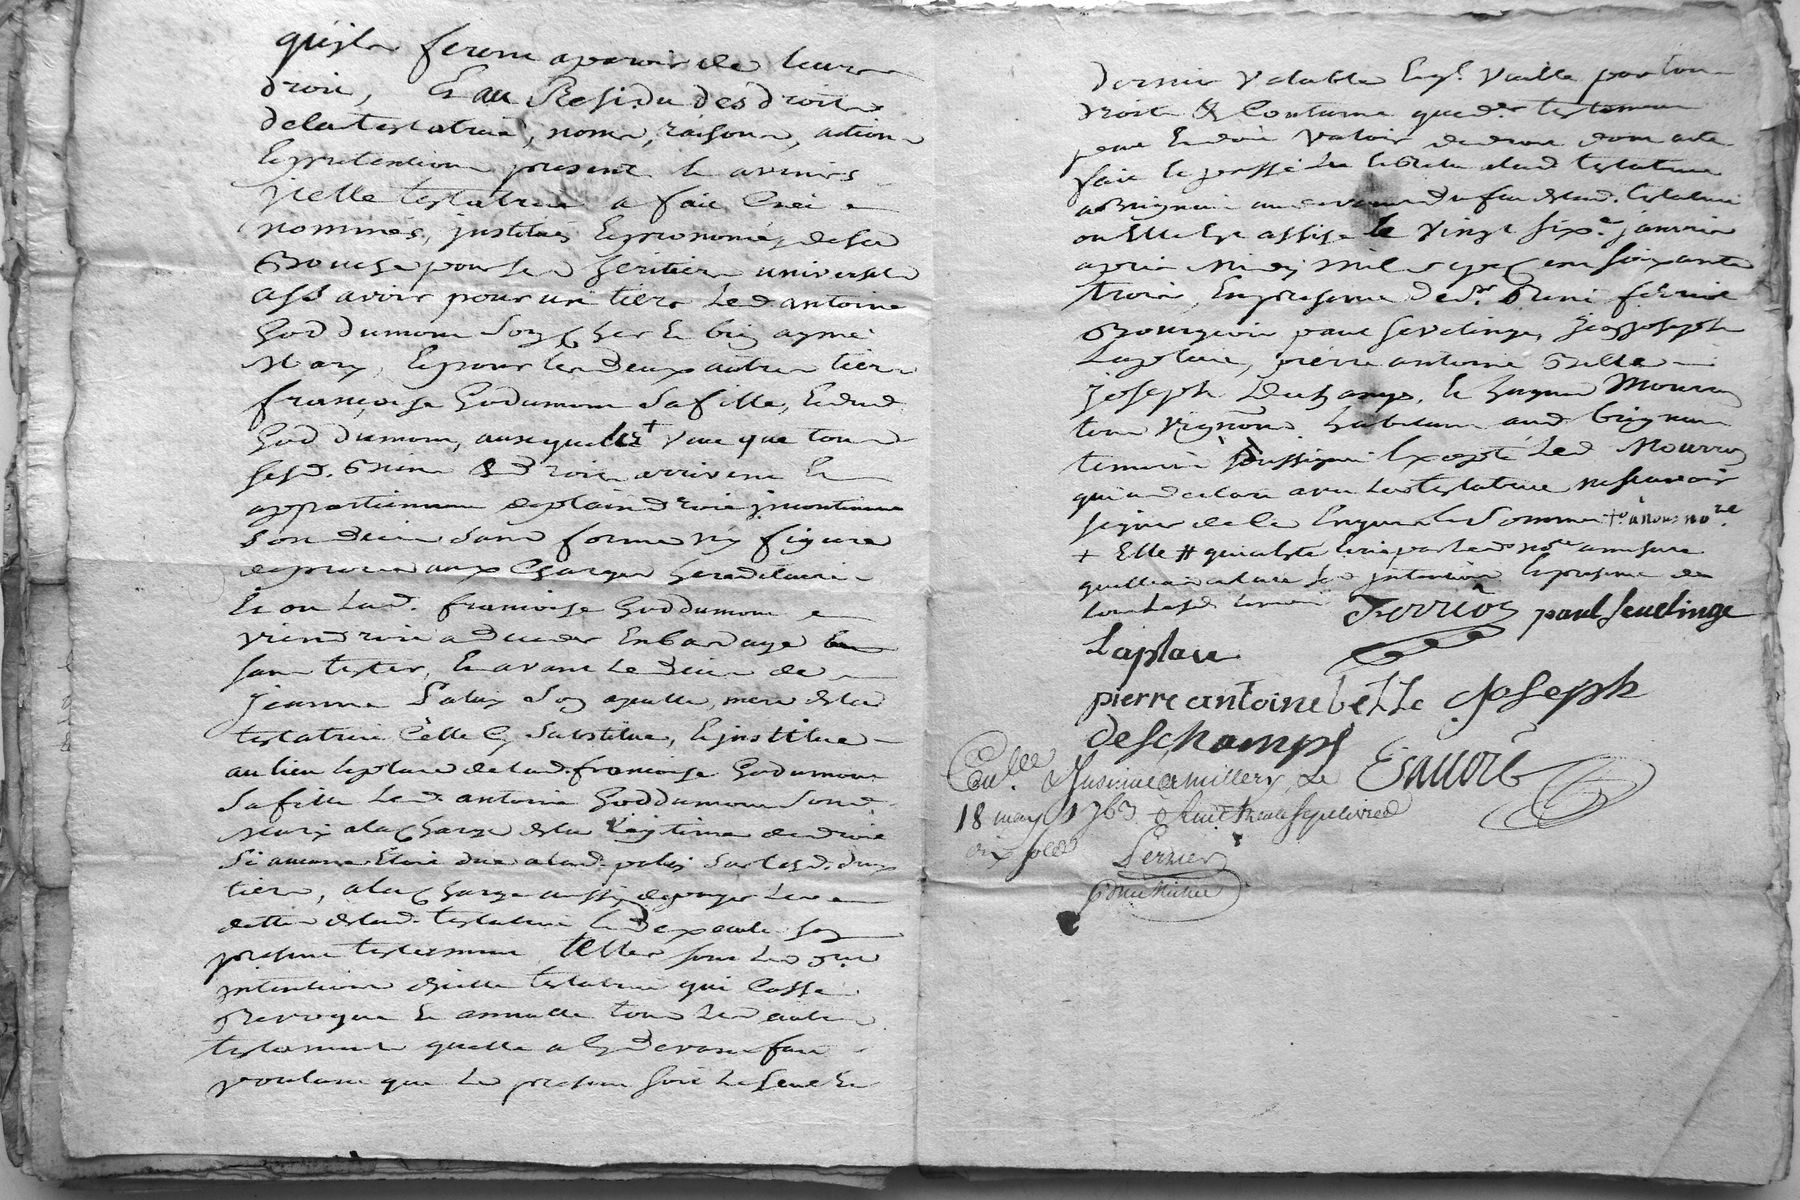 quils feront aparoir de leurs
droit, Et au Residu des droits
de la testatrice, noms, raisons, actions
Et pretentions present et avenirs
Jcelle testatrice a fait Créé
nommés, justitués Et prononcés de sa
Bouche pour ses heritiers universels
assavoir pour un tiers led. antoine
Goddumom Son cher et bien aymé
Mary, Et pour les deux autres tiers
françoise Godumom Sa fille, Et dud.
Goddumom, auxquels veut que tous
sesd. Biens & droits arrivent Et
appartiennent de plain droit jncontinent
Son deces sans forme ny figure
de proces aux Charges hereditaires
Et ou lad. françoise Goddumom
viendroit a deceder En bas age
sans tester, Et avant le deces de
jeanne Palay Son ayeulle, mere de la
testatrice Celle Cy Substitue, Et jnstitue
au lieu Et place de lad. françoise Godumom
Sa fille led. antoine Goddumom Sond.
Mary a la Charge de la légitime de droit
Si aucune Etoit due a lad. palay Sur lesd. deux
tiers, a la Charge aussy de payer les
dettes de lad. testatrice Et d'executer son
present testament telles sont les dres
jntentions de jcelle testatrice qui Casse
Revoque Et annulle tous les autres
testament quelle a Cy devant fait
voulant que le present soit le seul Et
dernier Valable Et qu'il Vaille par tous
droits & Coutume que dr testament
peut Et doit Valoir de droit dont acte
fait Et passé Lu Et Relu a lad testatrice
a Brignais au devant du feu de lad. testatrice
ou Elle Est assise le Vingt sixe janvier
apres Midy Mil sept cent soixante
trois, En presence de sr. René ferriot
Bourgeois paul sevelinge, jean joseph
Laplace, pierre antoine Bille
joseph Deschamps, Et Mourron
tous Vignerons habitans aud Brignais
temoins soussignes Excepté led Mourron
qui a declaré avec la testatrice ne scavoir
signer de ce Enquis Et Sommé +o a nous nore
+ Elle # qui a Eté Ecrit par led nore a mesure
quelle a declaré Ses jntentions Et presence de
tous lesd temoins Ferriot paul sevelinge
Laplace
pierre antoine belle Joseph
deschamps Esauvre
Coulle. & Jnsinué a millery, Le
18 may 1763
dix sols Perrier